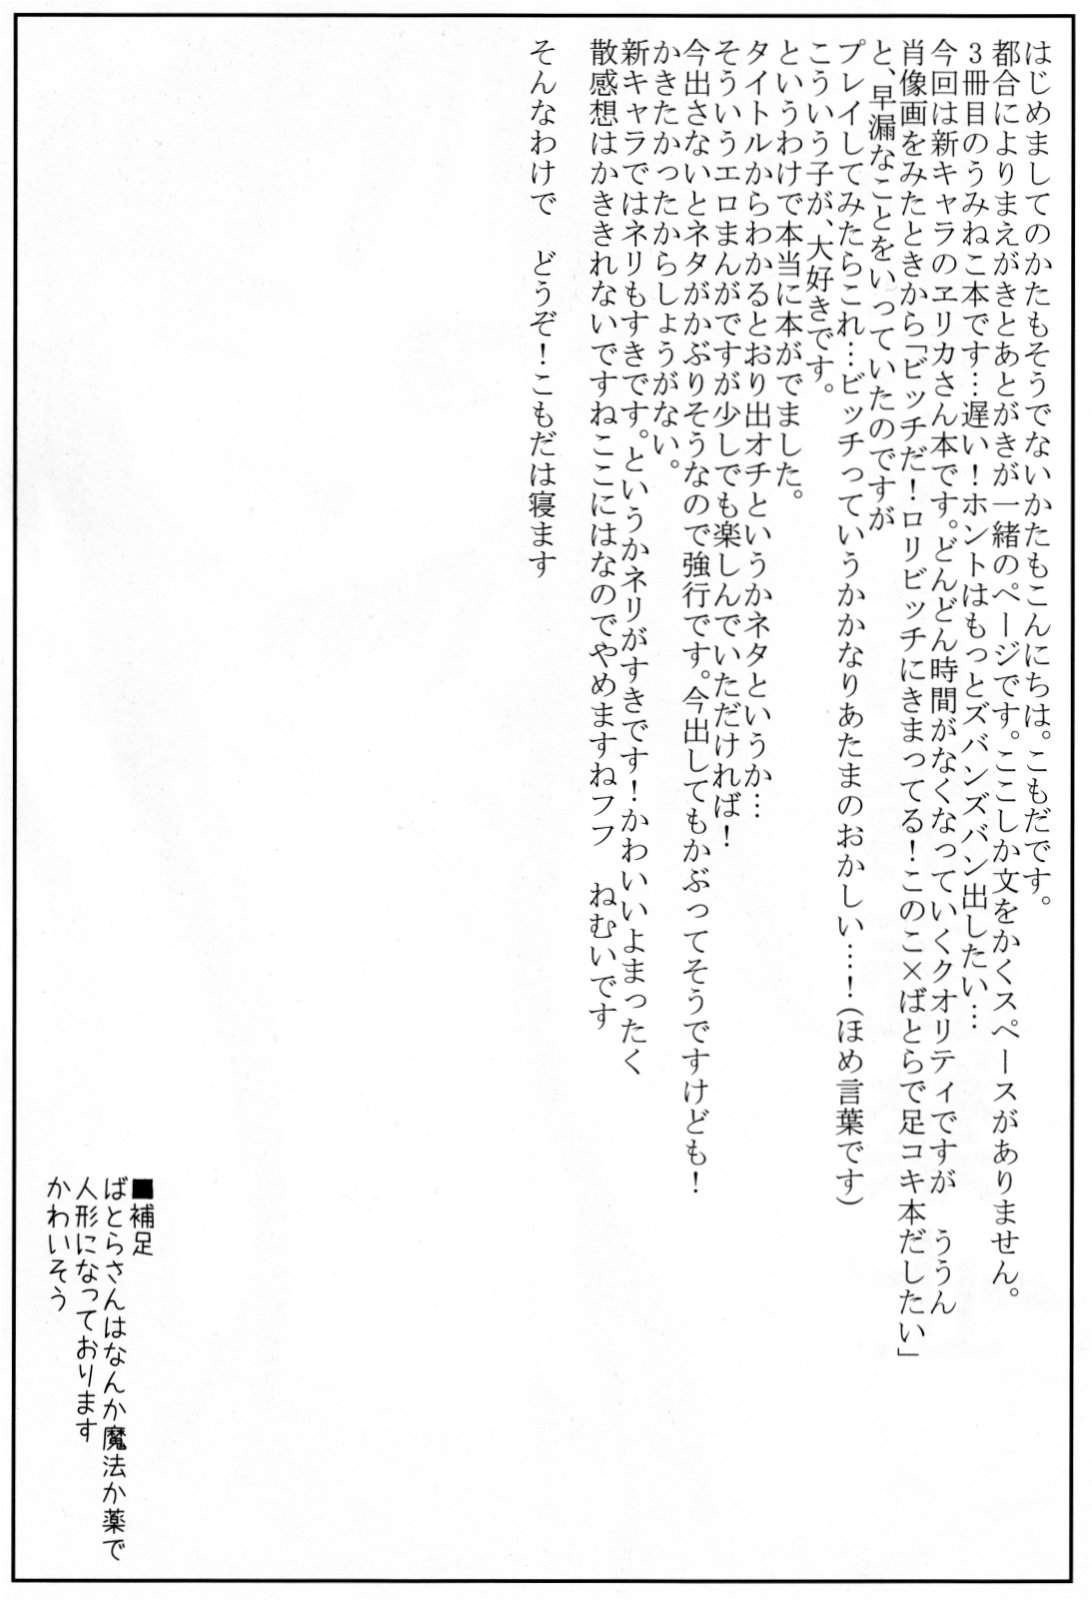 はじめましてのかたもそうでないかたもこんにちは。こもだです。
都合によりまえがきとあとがきが一緒のページです。ここしか文をかくスペースがありません。
３冊目のうみねこ本です…遅い！ホントはもっとズバンズバン出したい…
今回は新キャラのヱリカさん本です。どんどん時間がなくなっていくクオリティですが　ううん
肖像画をみたときから「ビッチだ！ロリビッチにきまってる！このこ×ばとらで足コキ本だしたい」
と、早漏なことをいっていたのですが
プレイしてみたらこれ…ビッチっていうかかなりあたまのおかしい…！（ほめ言葉です）
こういう子が、大好きです。
というわけで本当に本がでました。
タイトルからわかるとおり出オチというかネタというか…
そういうエロまんがですが少しでも楽しんでいただければ！
今出さないとネタがかぶりそうなので強行です。今出してもかぶってそうですけども！
かきたかったからしょうがない。
新キャラではネリもすきです。というかネリがすきです！かわいいよまったく
散感想はかききれないですねここにはなのでやめますねフフ　ねむいです
そんなわけで　どうぞ！こもだは寝ます
■補足
ばとらさんはなんか魔法か薬で
人形になっております
かわいそう